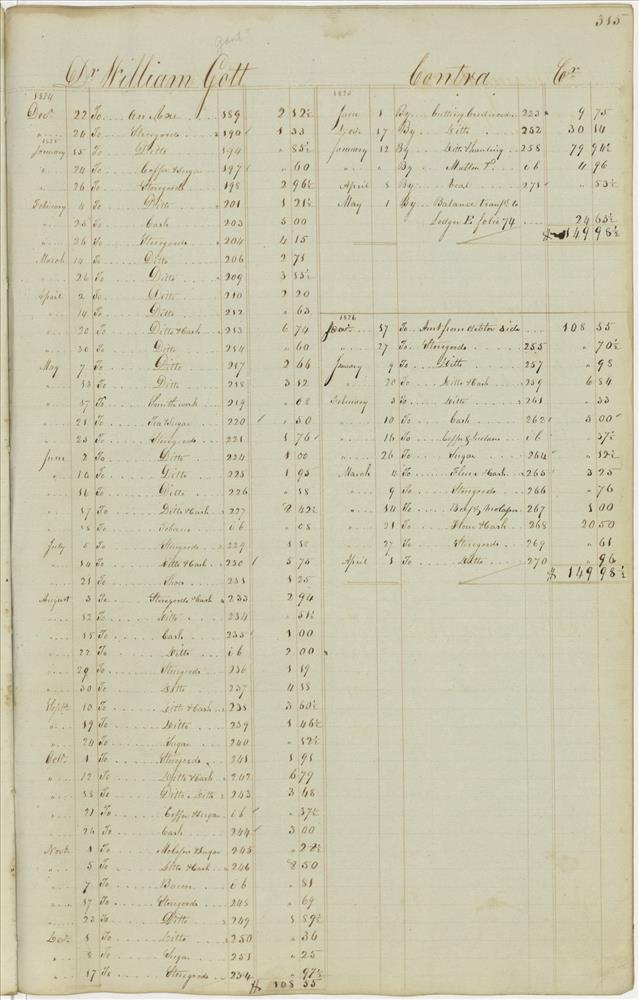 315
Gott
Dr William Gott
1824
Decr. 22 To An Axe 189 2 12½
" 24 To Storegoods 190 1 33
1825
January 15 To Ditto 194 " 85½
" 24 To Coffee & Sugar 197 " 60
" 26 To Storegoods 198 2 96½
February 4 To Ditto 201 1 21½
" 25 To Cash 203 5 00
" 26 To Storegoods 204 4 15
March 14 To Ditto 206 2 71
" 26 To Ditto 209 3 15½
April 2 To Ditto 210 2 20
" 14 To Ditto 212 " 63
" 20 To Ditto & Cash 213 6 74
" 30 To Ditto 214 " 60
May 7 To Ditto 217 2 66
" 13 To Ditto 218 3 12
" 17 To Smithwork 219 " 08
" 21 To Tea & Sugar 220 " 50
" 25 To Storegoods 221 1 76
June 2 To Ditto 224 1 00
" 10 To Ditto 225 1 95
" 16 To Ditto 226 " 18
" 17 To Ditto & Cash 227 2 42½
" 18 To Tobacco ib " 08
July 5 To Storegoods 229 1 18
" 14 To Ditto & Cash 230 5 75
" 21 To Shoes 231 1 25
August 3 To Storegoods & Cash 233 2 94
" 12 To Ditto 234 " 31½
" 15 To Cash 235 1 00
" 22 To Ditto ib 2 00
" 29 To Storegoods 236 1 19
" 30 To Ditto 237 4 18
Septr. 10 To Ditto & Cash 238 3 60½
" 19 To Ditto 239 1 46½
" 24 To Sugar 240 " 12½
Octr. 1 To Storegoods 241 1 91
" 12 To Ditto & Cash 242 6 79
" 18 To Ditto Ditto 243 3 48
" 21 To Coffee & Sugar ib " 37½
" 26 To Cash 244 3 00
Novr. 1 To Molasses & Sugar 245 " 28½
" 5 To Ditto & Cash 246 8 50
" 7 To Bacon ib " 81
" 17 To Storegoods 248 " 69
" 23 To Ditto 249 1 89½
Decr. 1 To Ditto 250 " 36
" 8 To Sugar 251 " 25
" 17 To Storegoods 254 " 97½
$ 108 55
Contra Cr
1825
June 1 By Cutting Cordwood 223 9 75
Decr. 17 By Ditto 252 30 14
January 12 By Ditto & hauling 258 79 94½
" " By Mutton &c. ib 4 96
April 8 By 271 " 53½
May 1 By Balance transfd. to
Ledger E folio 74 24 65½
$ 149 98½
1826
Decr. 17 To Amt from debtor side 108 55
" 27 To Storegoods 255 " 70½
January 9 To Ditto 257 " 98
" 20 To Ditto & Cash 259 6 84
February 3 To Ditto 261 " 33
" 10 To Cash 262 5 00
" 16 To Coffee & ib " 37½
" 26 To Sugar 264 " 12½
March 4 To Flour & Cash 265 3 25
" 9 To Storegoods 266 " 76
" 14 To & Molasses 267 1 00
" 21 To Flour & Cash 268 20 50
" 27 To Storegoods 269 " 61
April 1 To Ditto 270 " 96
$ 149 98½